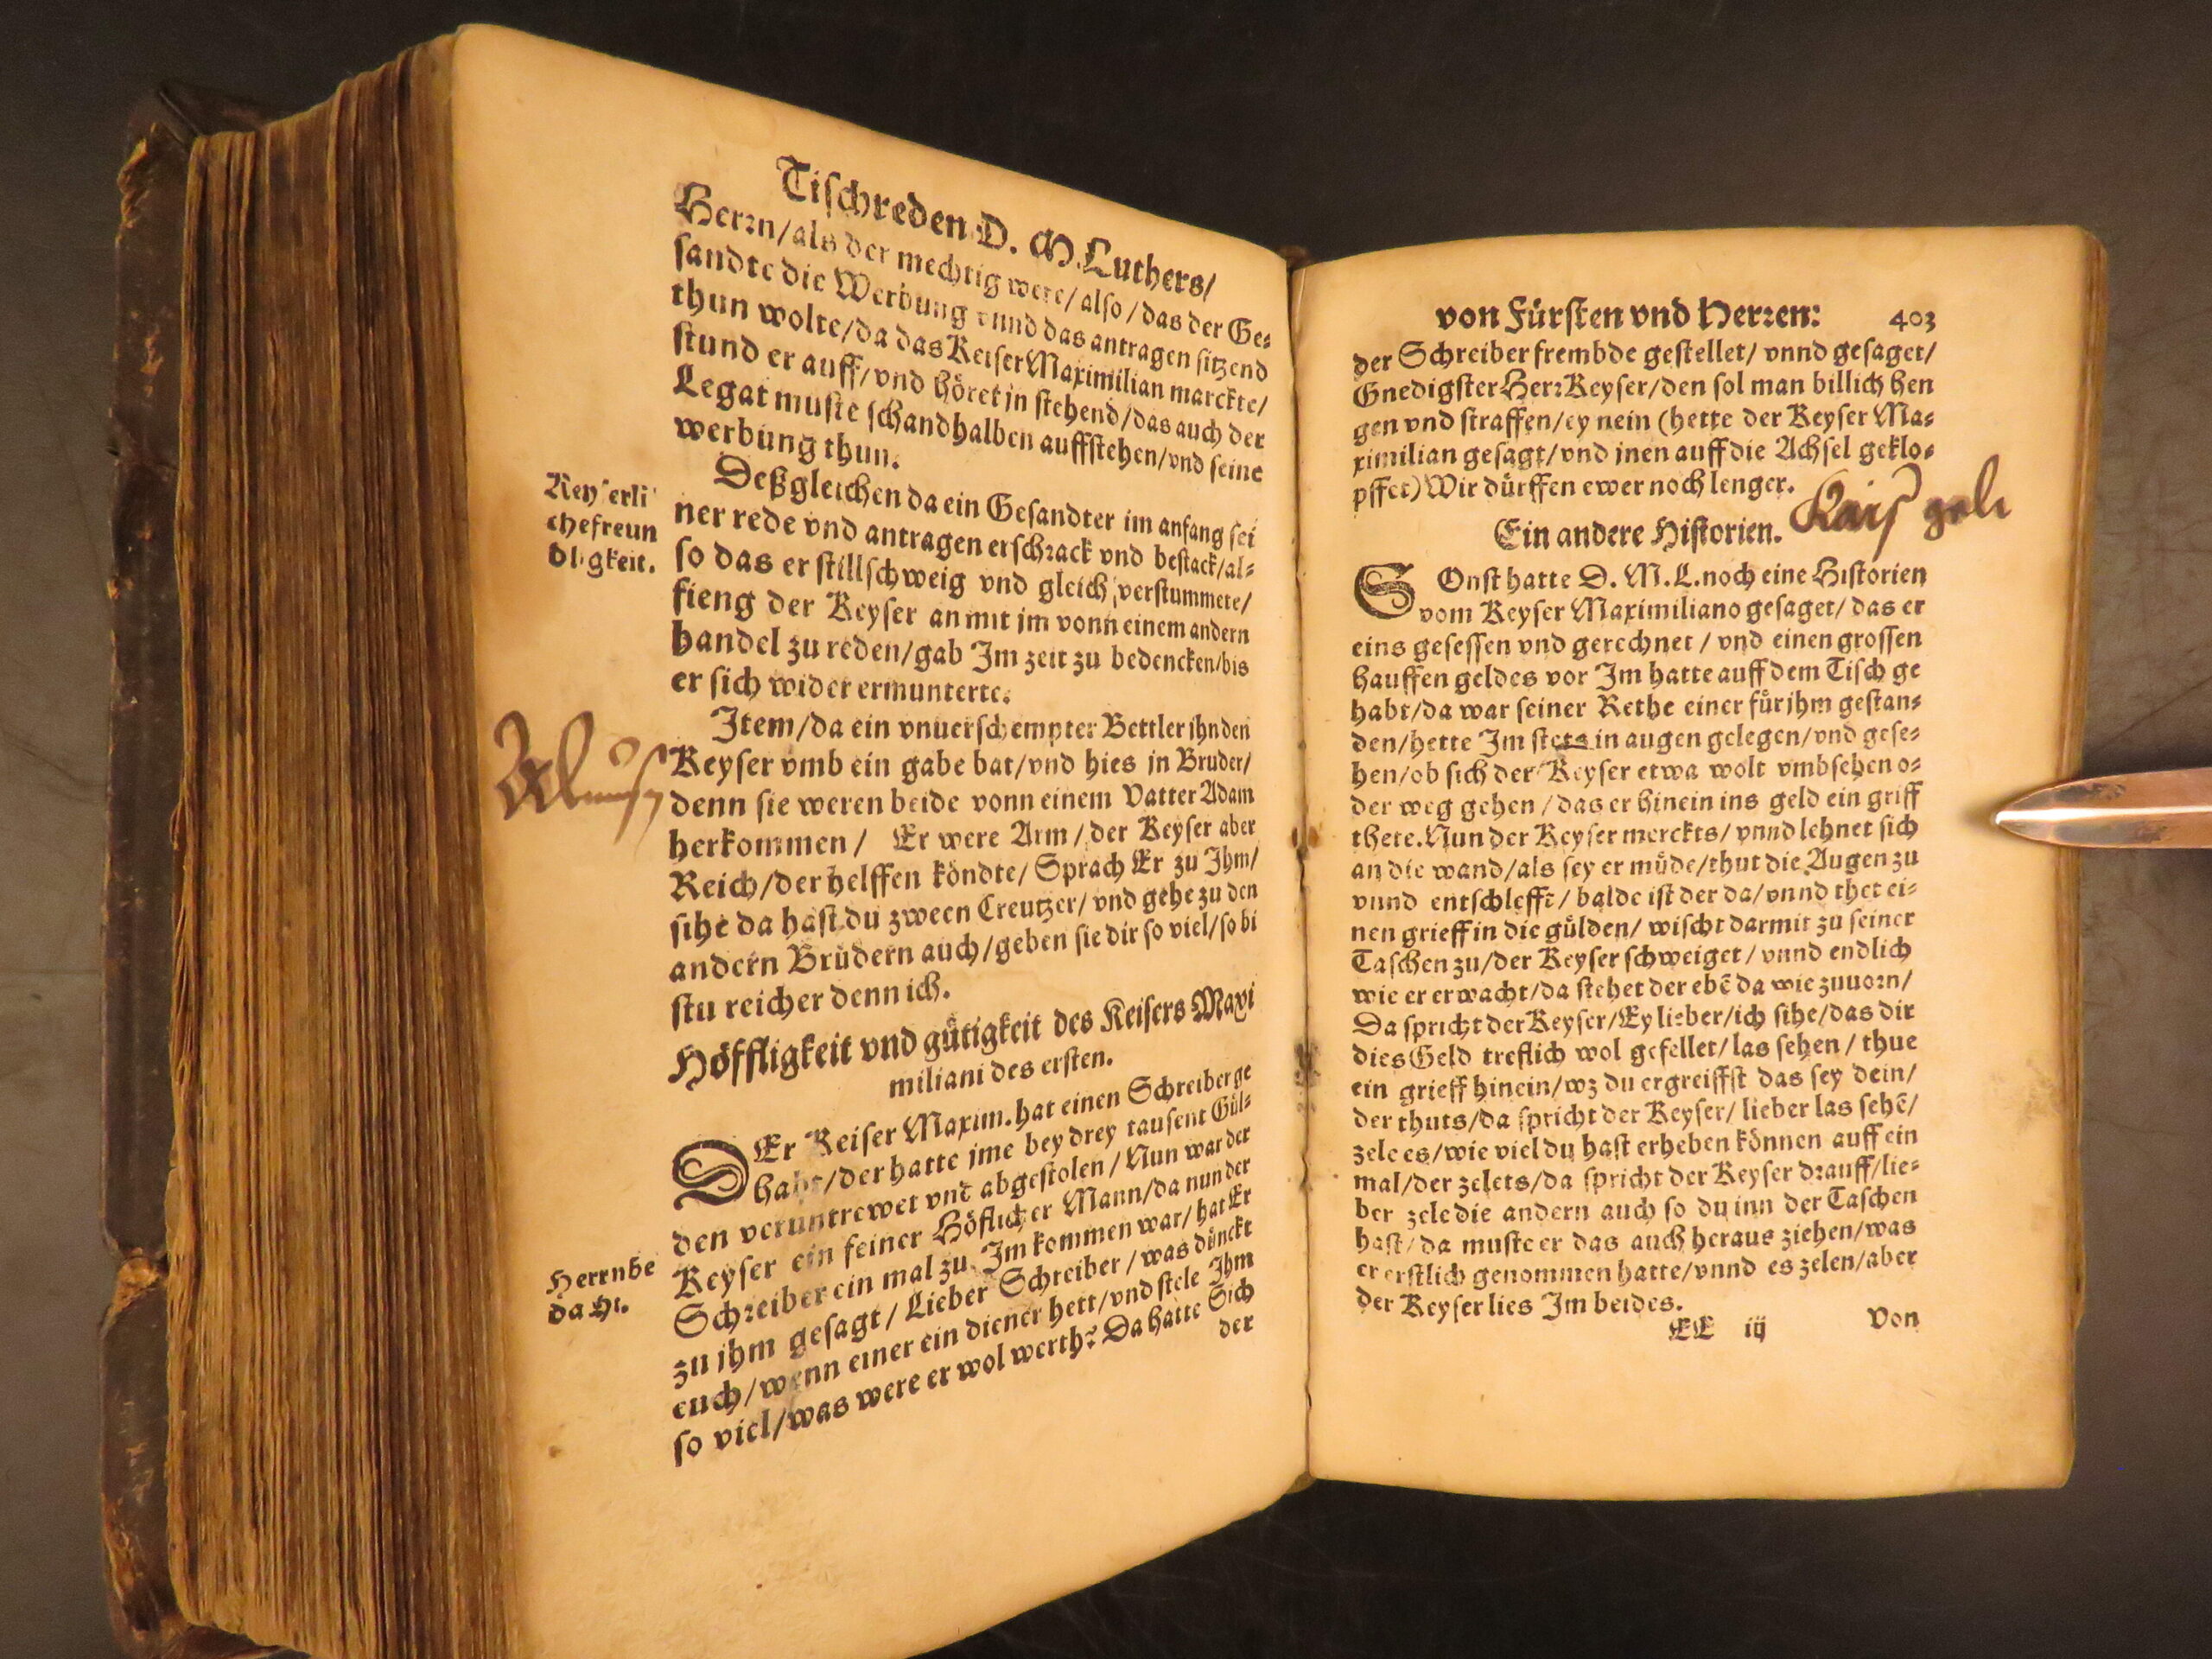 Tischreden D. M. Luthers/
Herrn/als der mechtig were/also/das der Ge-
sandte die Werbung vnnd das antragen sitzend
thun wolte/da das Keiser Maximilian marckte/
stund er auff/vnd höret jn stehend/das auch der
Legat muste schandhalben auffstehen/vnd seine
werbung thun.
Keyserli
chefreun
dligkeit.
Deßgleichen da ein Gesandter im anfang sei
ner rede vnd antragen erschrack vnd bestack/al-
so das er stillschweig vnd gleich verstummete/
fieng der Keyser an mit jm vonn einem andern
handel zu reden/gab Im zeit zu bedencken/bis
er sich wider ermunterte.
Item/da ein vnuerschempter Bettler jhn den
Keyser vmb ein gabe bat/vnd hies jn Bruder/
denn sie weren beide vonn einem Vatter Adam
herkommen/ Er were Arm/der Keyser aber
Reich/der helffen köndte/Sprach Er zu Ihm/
sihe da hast du zween Creutzer/vnd gehe zu den
andern Brüdern auch/geben sie dir so viel/so bi
stu reicher denn ich.
Höffligkeit vnd gütigkeit des Keisers Maxi
miliani des ersten.
DEr Keiser Maxim. hat einen Schreiber ge
habt/der hatte jme bey drey tausent Gül-
den veruntrewet vnd abgestolen/Nun war der
Keyser ein feiner Höflicher Mann/da nun der
Schreiber ein mal zu Im kommen war/hat Er
zu jhm gesagt/Lieber Schreiber/was dünckt
euch/wenn einer ein diener hett/vnd stele Ihm
so viel/was were er wol werth? Da hatte Sich
der
Herrn be
dacht.
von Fürsten vnd Herren: 403
der Schreiber frembde gestellet/vnnd gesaget/
Gnedigster Herr Keyser/den sol man billich hen
gen vnd straffen/ey nein (hette der Keyser Ma-
ximilian gesagt/vnd jnen auff die Achsel geklo-
pffet) Wir dürffen ewer noch lenger.
Ein andere Historien.
SOnst hatte D. M. L. noch eine Historien
vom Keyser Maximiliano gesaget/das er
eins gesessen vnd gerechnet/vnd einen grossen
hauffen geldes vor Im hatte auff dem Tisch ge
habt/da war seiner Rethe einer für jhm gestan-
den/hette Im stets in augen gelegen/vnd gese-
hen/ob sich der Keyser etwa wolt vmbsehen o-
der weg gehen/das er hinein ins geld ein griff
thete. Nun der Keyser merckts/vnnd lehnet sich
an die wand/als sey er müde/thut die Augen zu
vnnd entschleffē/balde ist der da/vnnd thet ei-
nen grieff in die gülden/wischt darmit zu seiner
Taschen zu/der Keyser schweiget/vnnd endlich
wie er erwacht/da stehet der ebē da wie zuuorn/
Da spricht der Keyser/Ey lieber/ich sihe/das dir
dies Geld treflich wol gefellet/las sehen/thue
ein grieff hinein/wz du ergreiffst das sey dein/
der thuts/da spricht der Keyser/lieber las sehē/
zele es/wie viel du hast erheben können auff ein
mal/der zelets/da spricht der Keyser drauff/lie-
ber zele die andern auch so du inn der Taschen
hast/da muste er das auch heraus ziehen/was
er erstlich genommen hatte/vnnd es zelen/aber
der Keyser lies Im beides.
EE iij Von